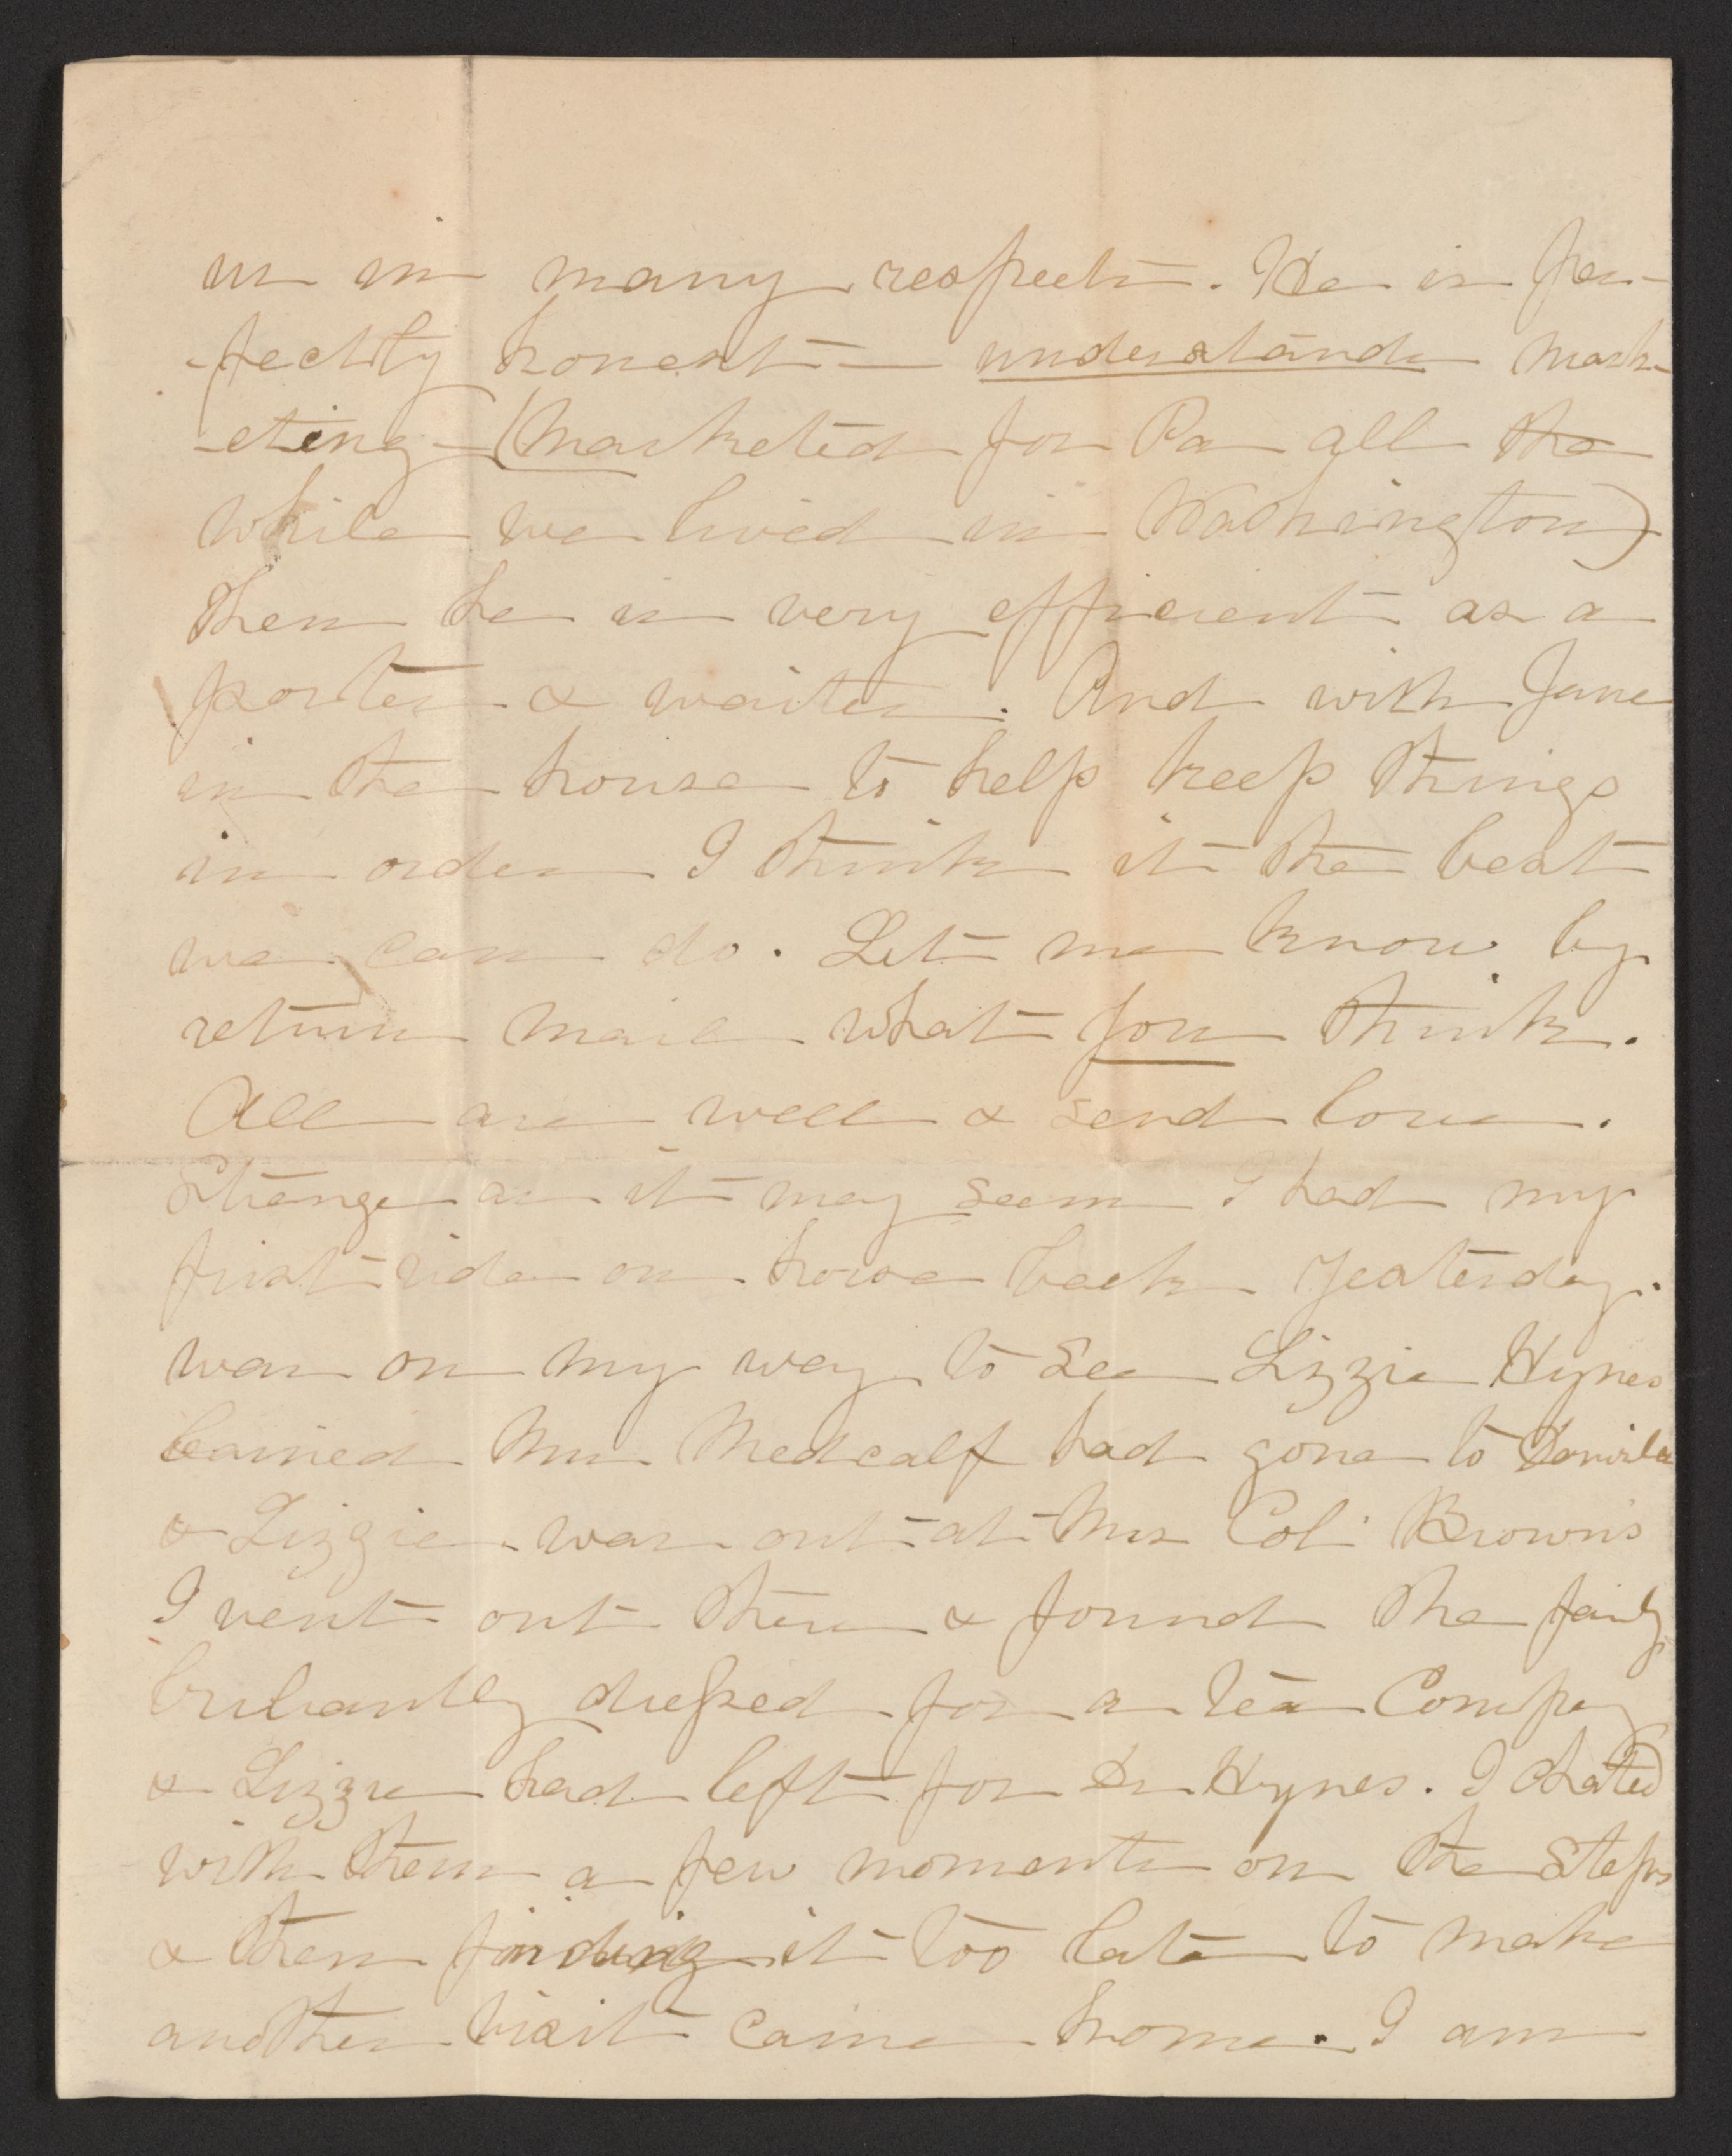 us in many respects. He is per-
-fectly honest — understands mark-
-eting — (marketed for Pa all the
while we lived in Washington)
Then he is very efficient as a
porter & waiter. And with Jane
in the house to help keep things
in order I think it the best
we can do. Let me know by
return mail what you think.
All are well & send love.
Strange as it may seem I had my
first ride on horse back yesterday.
was on my way to see Lizzie Hynes
learned Mrs Medcalf had gone to
& Lizzie was out at Mrs Col. Brown's
I went out there & found the family
briliantly dressed for a tea Company
& Lizzie had left for Dr Hynes. I chated
with them a few moments on the steps
& then finding it too late to make
another visit came home. I am